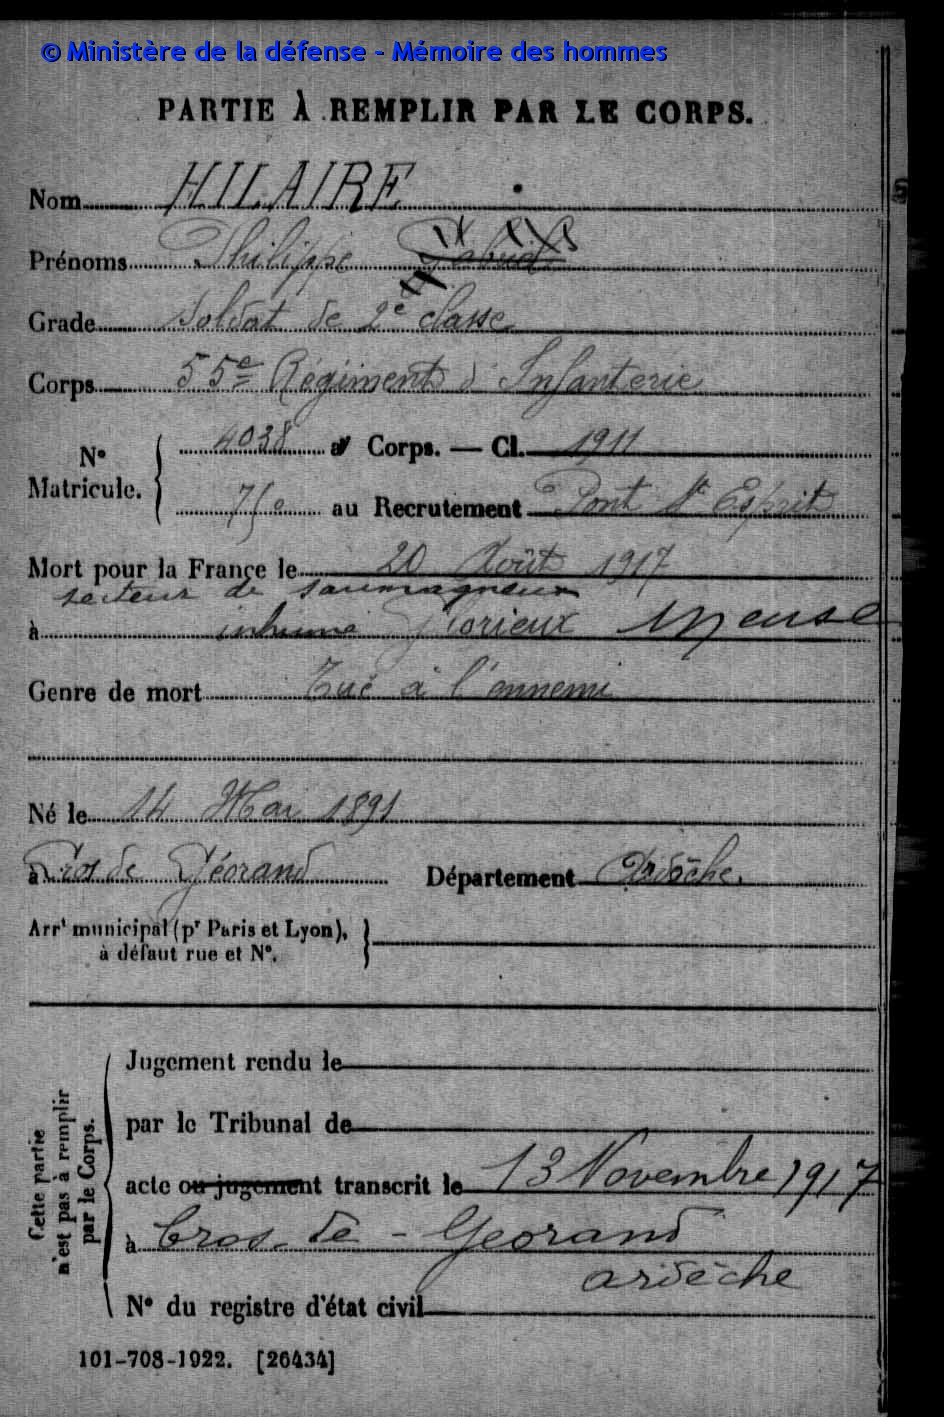 © Ministère de la défense - Mémoire des hommes
PARTIE À REMPLIR PAR LE CORPS.
Nom HILAIRE
Prénoms Philippe Gabriel
Grade Soldat de 2e classe
Corps 55e Régiment d'Infanterie
N° Matricule. 4038 au Corps. — Cl. 1911
au Recrutement Pont St Esprit
Mort pour la France le 20 Août 1917
secteur de Samogneux
à inhumé Glorieux Meuse
Genre de mort Tué à l'ennemi
Né le 14 Mai 1891
à Cros de Géorand Département Ardèche.
Arrt municipal (pr Paris et Lyon),
à défaut rue et N°.
Cette partie n'est pas à remplir par le Corps.
Jugement rendu le
par le Tribunal de
acte ou jugement transcrit le 13 Novembre 1917
à Cros-de-Georand
ardèche
N° du registre d'état civil
101-708-1922. [26434]